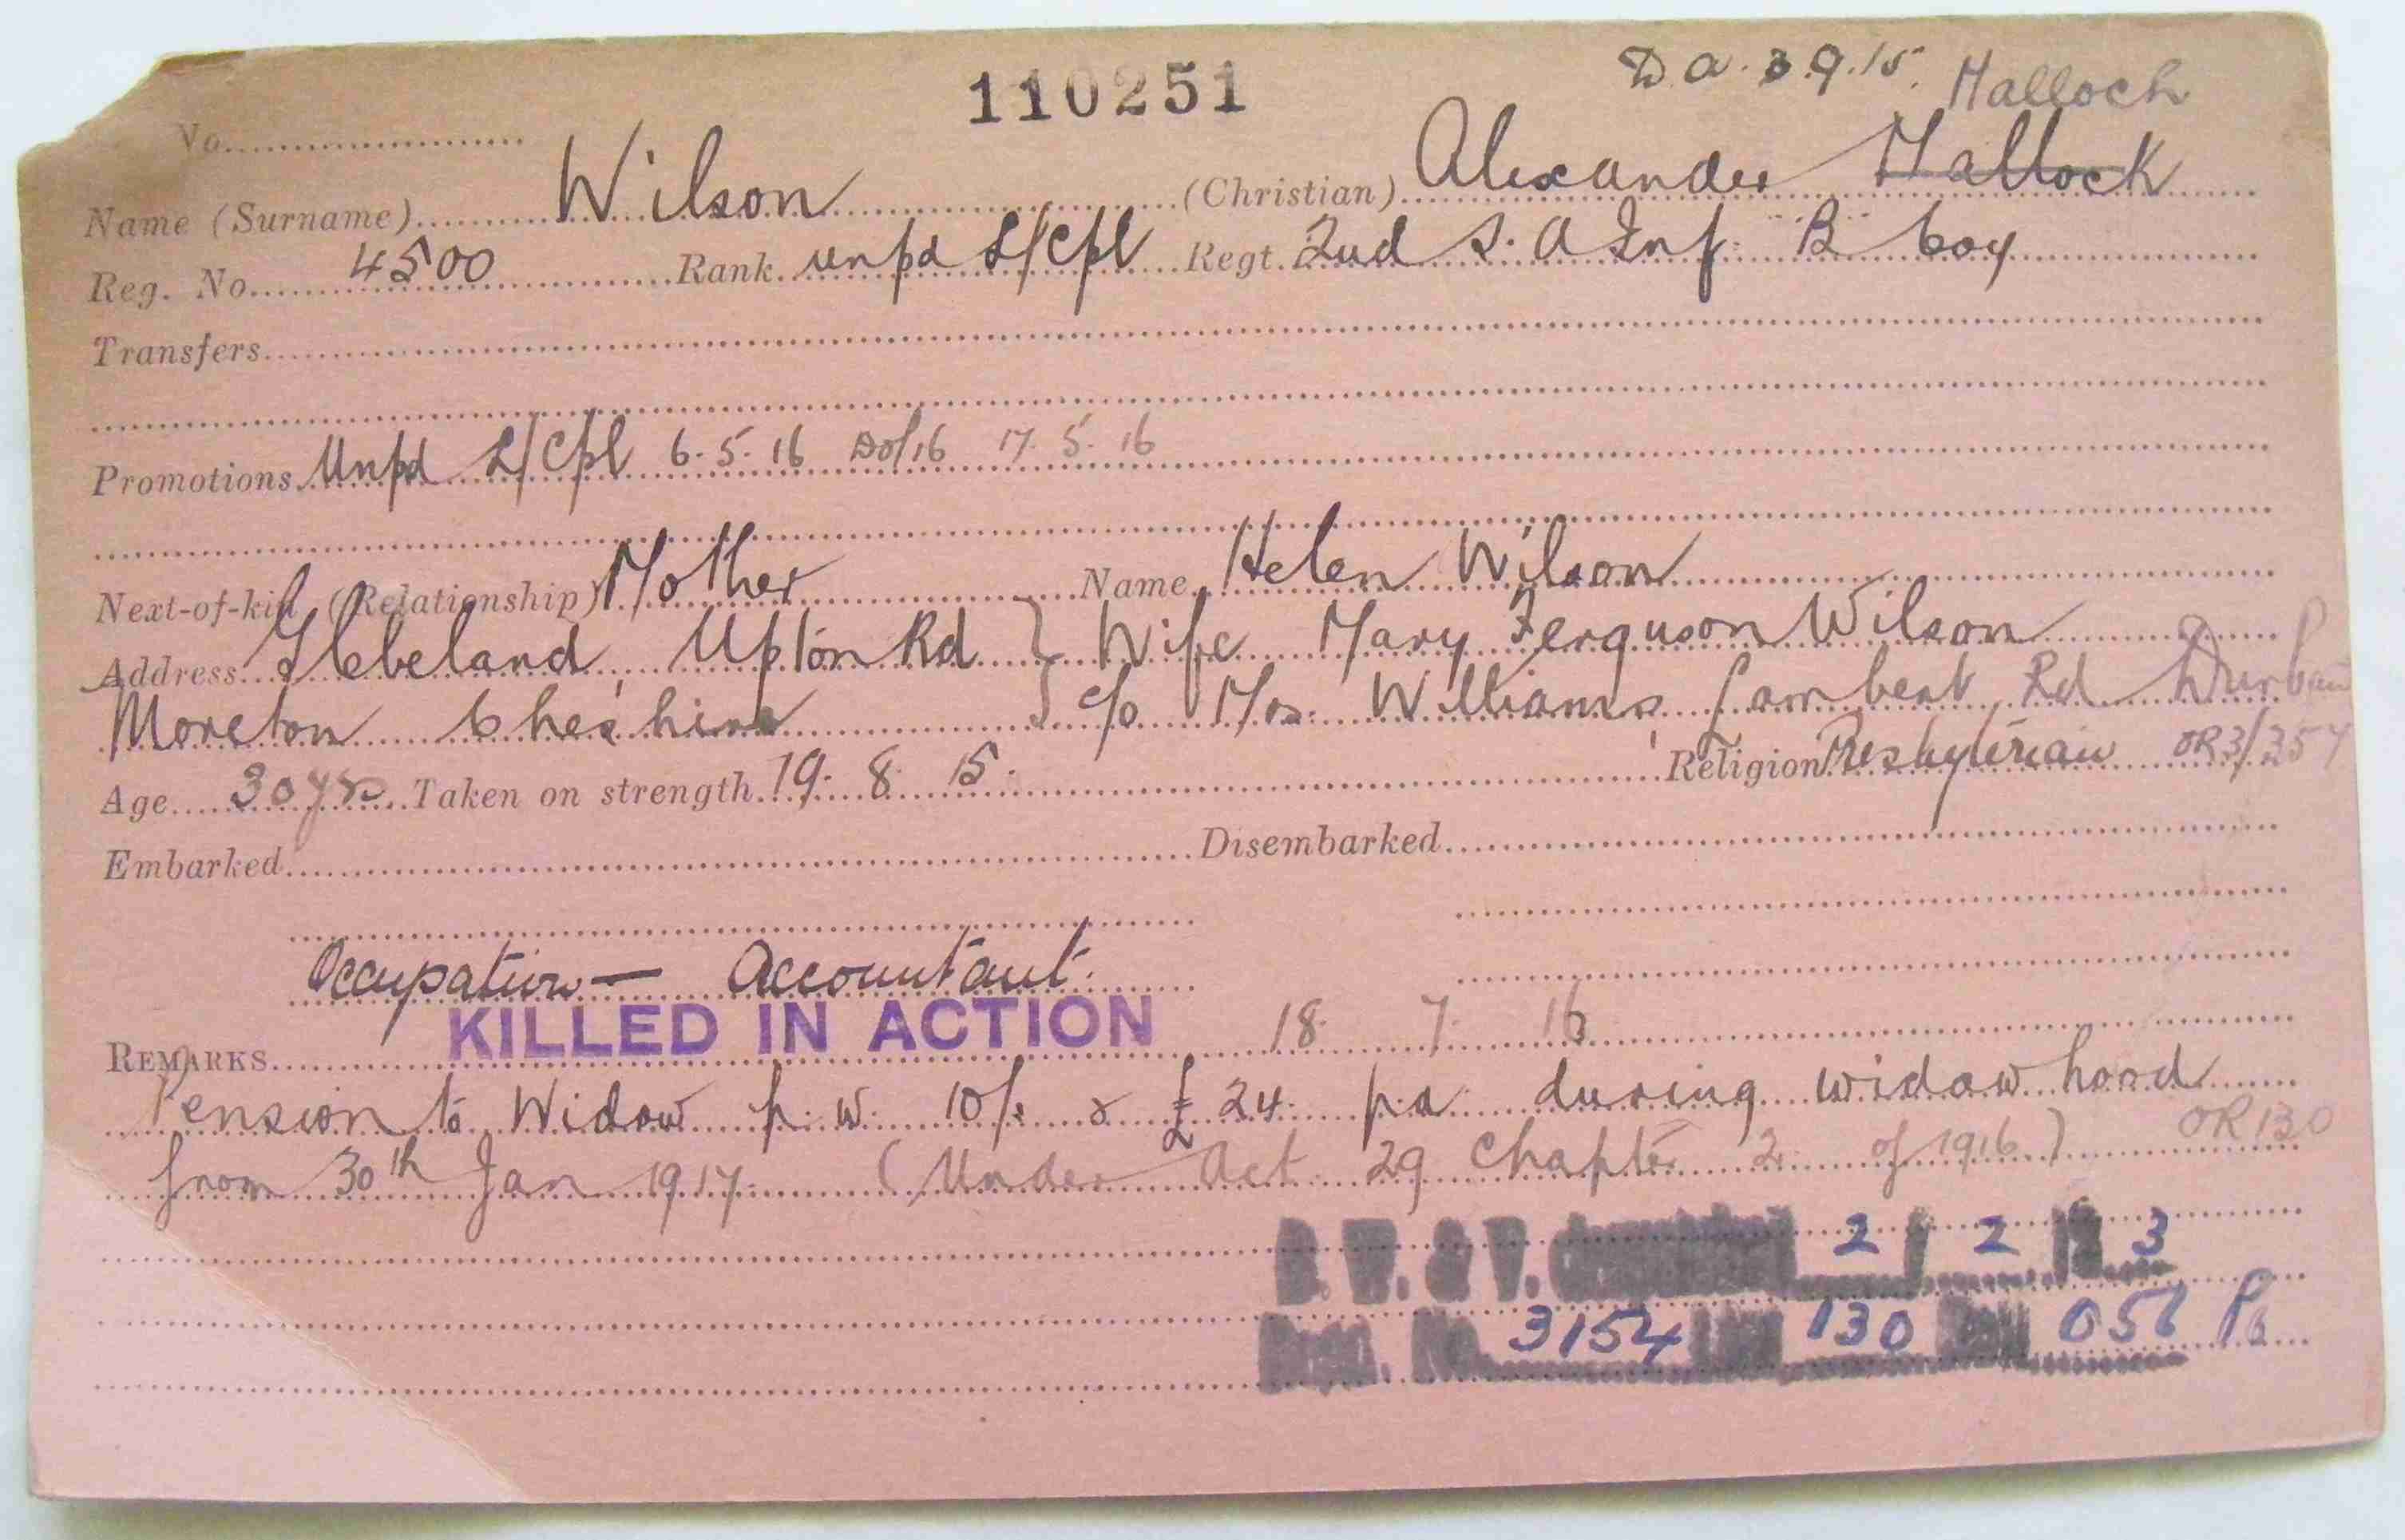 110251
D.A. 3.9.15. Malloch
No.
Name (Surname) Wilson (Christian) Alexander Mallock
Reg. No. 4500 Rank unpd L/Cpl Regt. 2nd S.A Inf. B Coy
Transfers
Promotions Unpd L/Cpl 6.5.16 DO/16 17.5.16
Next-of-kin (Relationship) Mother Name Helen Wilson
Address Glebeland, Upton Rd } Wife Mary Ferguson Wilson
Moreton Cheshire } c/o Mrs. Williams Lambert Rd Durban
Age 30 yrs Taken on strength 19. 8. 15. Religion Presbyterian OR3/357
Embarked Disembarked
Occupation — Accountant.
REMARKS KILLED IN ACTION 18. 7. 16
Pension to Widow p.w. 10/. & £24. p.a. during widowhood
from 30th Jan 1917 (Under Act 29 Chapter 2 of 1916) OR 130
B. W. & V. 2 / 2 3
No. 3154 130 056 P6